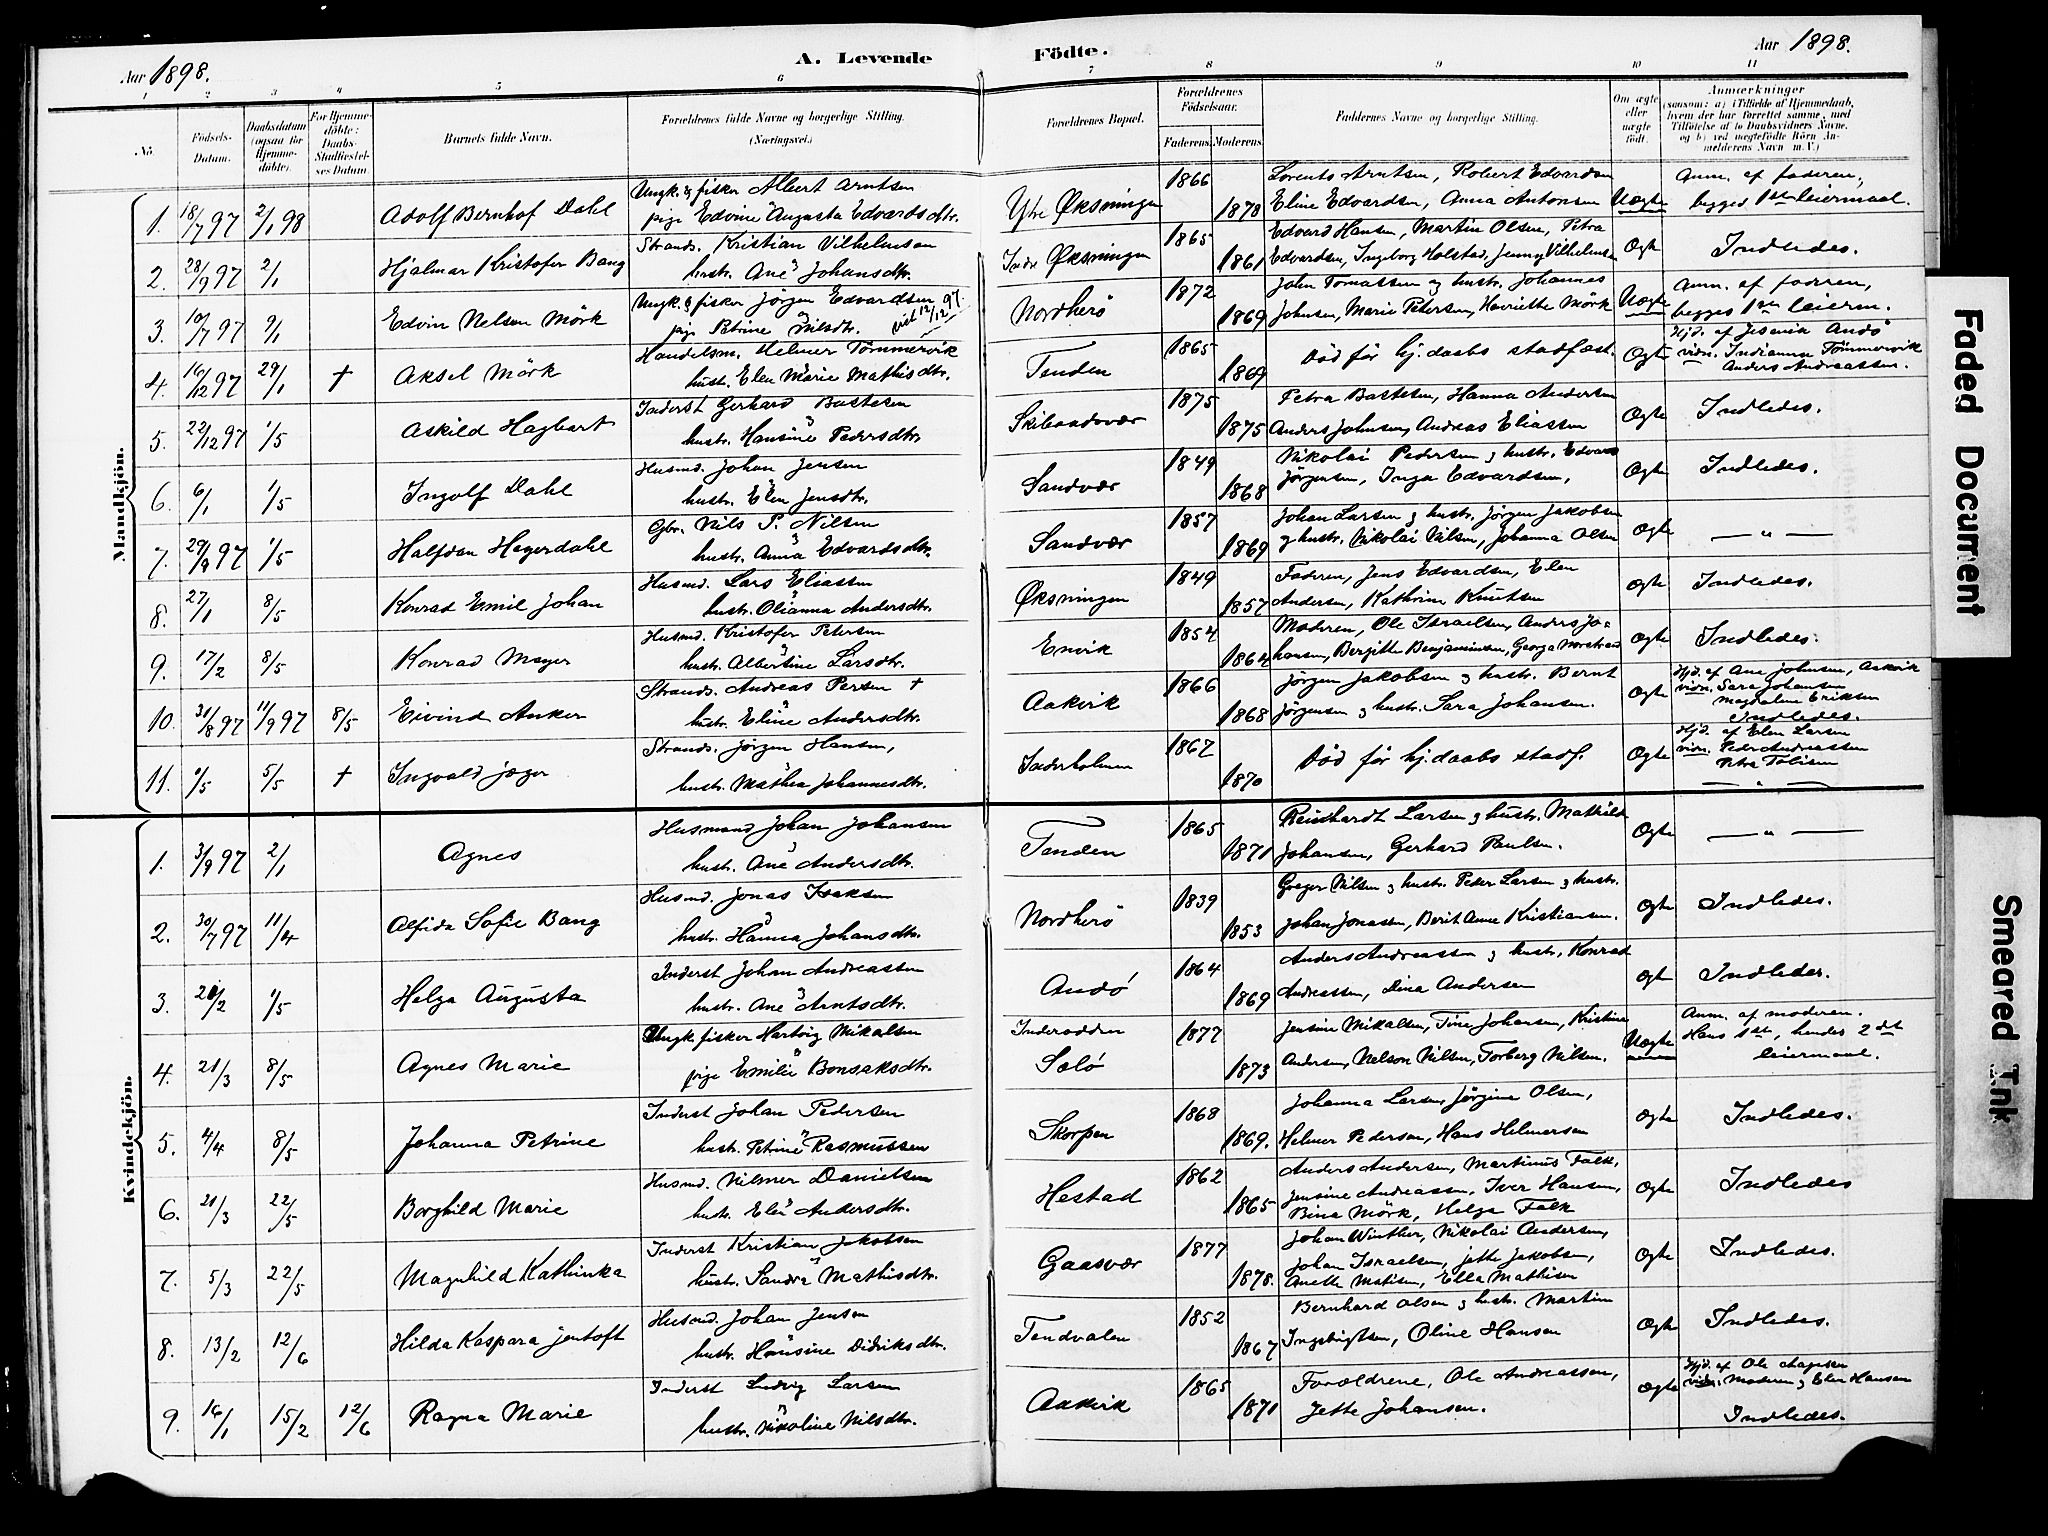 Aar 1898.
A. Levende
Födte.
Aar 1898.
1 2 3 4 5 6 7 8 9 10 11
No.
Födsels-
Datum.
Daabsdatum
(ogsaa for
Hjemme-
döbte).
For Hjemme-
döbte:
Daabs-
Stadfæstel-
ses Datum.
Barnets fulde Navn.
Forældrenes fulde Navne og borgerlige Stilling.
(Næringsvei.)
Forældrenes Bopæl.
Forældrenes
Födselsaar.
Faderens.
Moderens.
Faddernes Navne og borgerlige Stilling.
Om ægte
eller
uægte
født.
Anmærkninger
(saasom: a) i Tilfælde af Hjemmedaab,
hvem der har forrettet samme, med
Tilföielse af to Daabsvidners Navne,
og b) ved uægtefödte Börn An-
melderens Navn m. V.)
Mandkjön.
1. 18/7 97 2/1 98 Adolf Bernhof Dahl
Ungk. & fisker Albert Arntsen
pige Edvine Augusta Edvardsdtr.
Ytre Øksningen 1866 1878
Lorents Arntsen, Robert Edvardsen
Eline Edvardsen, Anna Antonsen
Uægte
Anm. af faderen,
begges 1ste leiermaal.
2. 28/9 97 2/1 Hjalmar Kristofer Bang
Strands. Kristian Vilhelmsen
hustr. Ane Johansdtr.
Indre Øksningen 1865 1861
Edvard Hansen, Martin Olsen, Petra
Edvardsen, Ingeborg Holstad, Jenny Vilhelmsen
Ægte
Indledes.
3. 10/7 97 9/1 Edvin Nelsen Mörk
Ungk. & fisker Jörgen Edvardsen
pige Petrine Nilsdtr. viet 12/12 97.
Nordherö 1872 1869
John Tomassen og hustr. Johannes
Johnsen, Marie Petersen, Henriette Mörk
Uægte
Anm. af faderen,
begges 1ste leierm.
4. 16/12 97 29/1 † Aksel Mörk
Handelsm. Helmer Tömmervik
hustr. Elen Marie Mathisdtr.
Tenden 1865 1869
Död för hj.daabs stadfæst.
Ægte
Hjd. af Jesonia Andö
vidn. Indianna Tömmervik
Anders Andreassen.
5. 22/12 97 1/5 Askild Hagbart
Inderst Gerhard Bastesen
hustr. Hansine Pedersdtr.
Skibaadsvær 1875 1875
Petra Bastesen, Hanna Andersen
Anders Johnsen, Andreas Eliassen
Ægte
Indledes.
6. 6/1 1/5 Ingolf Dahl
Husmd. Johan Jensen
hustr. Elen Jensdtr.
Sandvær 1849 1868
Nikolai Pedersen & hustr. Edvard
Jörgensen, Inga Edvardsen,
Ægte
Indledes.
7. 29/9 97 1/5 Halfdan Heyerdahl
Gbr. Nils P. Nilsen
hustr. Anna Edvardsdtr.
Sandvær 1857 1869
Johan Larsen & hustr. Jörgen Jakobsen
& hustr. Nikolai Nilsen, Johanna Olsen
Ægte
— " —
8. 27/1 8/5 Konrad Emil Johan
Husmd. Lars Eliassen
hustr. Olianna Andersdtr.
Øksningen 1849 1857
Faderen, Jens Edvardsen, Elen
Andersen, Kathrine Knutsen
Ægte
Indledes.
9. 17/2 8/5 Konrad Meyer
Husmd. Kristofer Petersen
hustr. Albertine Larsdtr.
Envik 1854 1864
Moderen, Ole Israelsen, Anders Jo-
hansen, Bergitte Benjaminsen, Georga Norstrand
Ægte
Indledes.
10. 31/8 97 11/9 97 8/5 Eivind Anker
Strands. Andreas Persen †
hustr. Eline Andersdtr.
Aakvik 1866 1868
Jörgen Jakobsen & hustr. Bernt
Jörgensen & hustr. Sara Johansen.
Ægte
Hjd. af Ane Johnsen, Aakvik
vidn. Sara Johansen
Magdalene Eriksen
Indledes.
11. 1/5 5/5 † Ingvald Jæger
Strands. Jörgen Hansen,
hustr. Mathea Johannesdtr.
Inderholmen 1867 1870
Död för hj.daabs stadf.
Ægte
Hjd. af Elen Larsen
vidn. Peder Andreassen
Petra Tobisen
— " —
Kvindekjön.
1. 3/9 97 2/1 Agnes
Husmand Johan Johansen
hustr. Ane Andersdtr.
Tenden 1865 1871
Reinhardt Larsen & hustr. Mathilde
Johansen, Gerhard Paulsen.
Ægte
— " —
2. 30/7 97 11/4 Alfida Sofie Bang
Husmd. Jonas Isaksen
hustr. Hanna Johansdtr.
Nordherö 1839 1853
Greger Nilsen & hustr. Peder Larsen & hustr.
Johan Jonassen, Berit Anne Kristiansen.
Ægte
Indledes.
3. 20/2 1/5 Helga Augusta
Inderst Johan Andreassen
hustr. Ane Arntsdtr.
Andö 1864 1869
Anders Andreassen & hustr, Konrad
Andreassen, Dina Andersen
Ægte
Indledes.
4. 21/3 8/5 Agnes Marie
Ungk. fisker Hartvig Mikalsen
pige Emilie Bonsaksdtr.
Inderodden
Solö 1877 1873
Jensine Mikalsen, Tine Johansen, Kristine
Andersen, Nelson Nilsen, Torberg Nilsen.
Uægte
Anm. af moderen.
Hans 1ste, hendes 2det
leiermaal.
5. 4/4 8/5 Johanna Petrine
Inderst Johan Pedersen
hustr. Petrine Rasmussen
Skorpen 1868 1869.
Johanna Larsen, Jörgine Olsen,
Helmer Pedersen, Hans Helmersen
Ægte
Indledes.
6. 21/3 22/5 Borghild Marie
Husmd. Hilmer Danielsen
hustr. Elen Andersdtr.
Hestad 1862 1865
Anders Andersen, Martinus Falk,
Jensine Andreassen, Iver Hansen,
Bina Mörk, Helga Falk
Ægte
Indledes
7. 5/3 22/5 Magnhild Kathinka
Inderst Kristian Jakobsen
hustr. Sandra Mathisdtr.
Gaasvær 1877 1878.
Johan Winther, Nikolai Andersen,
Johan Israelsen, Jette Jakobsen,
Anette Matisen, Ella Mathisen
Ægte
Indledes.
8. 13/2 12/6 Hilda Kaspara Jentoft
Husmd. Johan Jensen
hustr. Hansine Didriksdtr.
Tendvalen 1852 1867
Bernhard Olsen & hustr. Martin
Ingebrigtsen, Oline Hansen
Ægte
Indledes.
9. 16/1 15/2 12/6 Ragna Marie
Inderst Ludvig Larsen
hustr. Nikoline Nilsdtr.
Aakvik 1865 1871
Forældrene, Ole Andreassen,
Jette Johansen.
Ægte
Hjd. af Ole Aagesen
vidn. Moderen & Elen Hansen
Indledes.
Faded Document
Smeared Ink